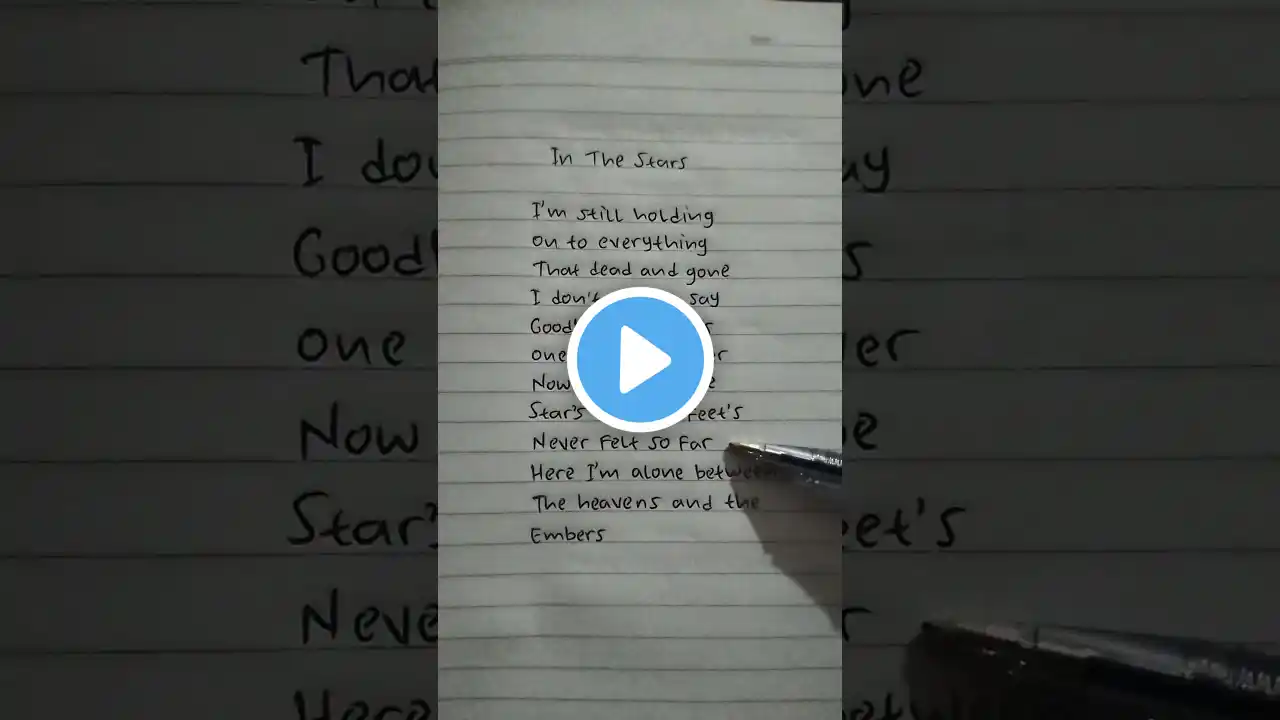 In The Stars
I'm still holding
on to everything
That dead and gone
I don't say
Good
one
Now
Star's Feet's
Never Felt so Far
Here I'm alone between
The heavens and the
Embers